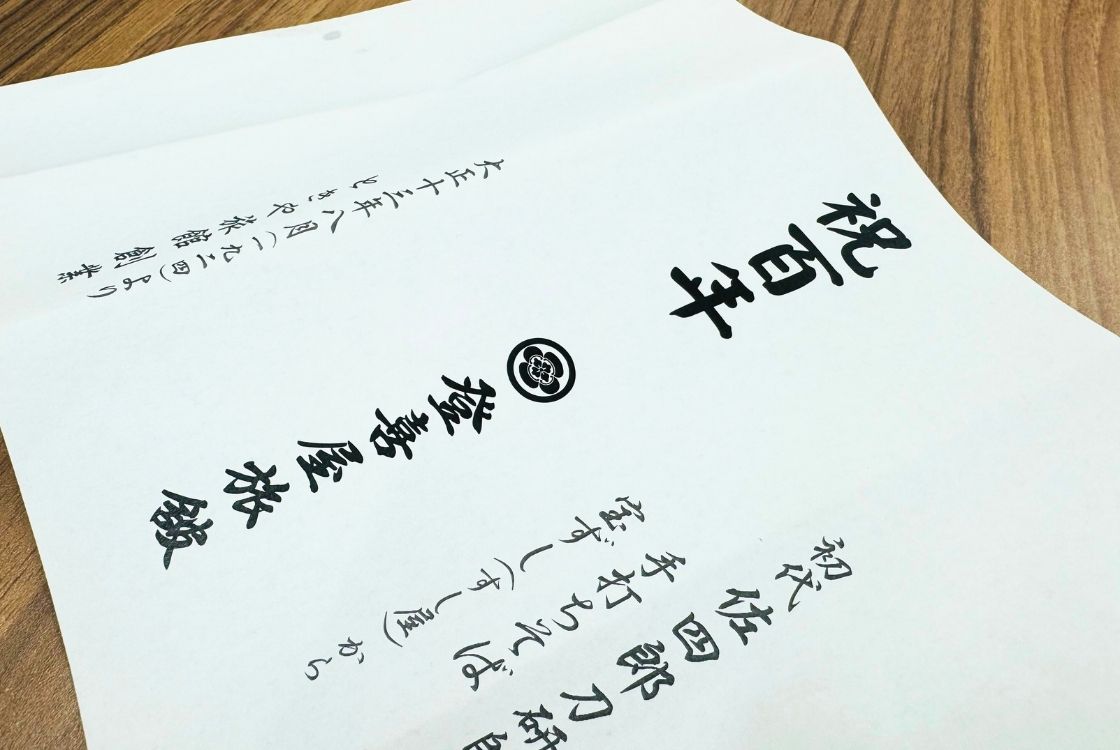 初代 佐四郎 刀研
手打ちそば
宝ずし(すし屋)から
祝百年 登喜屋旅館
大正十三年八月(一九二四)より
ときや旅館 創業